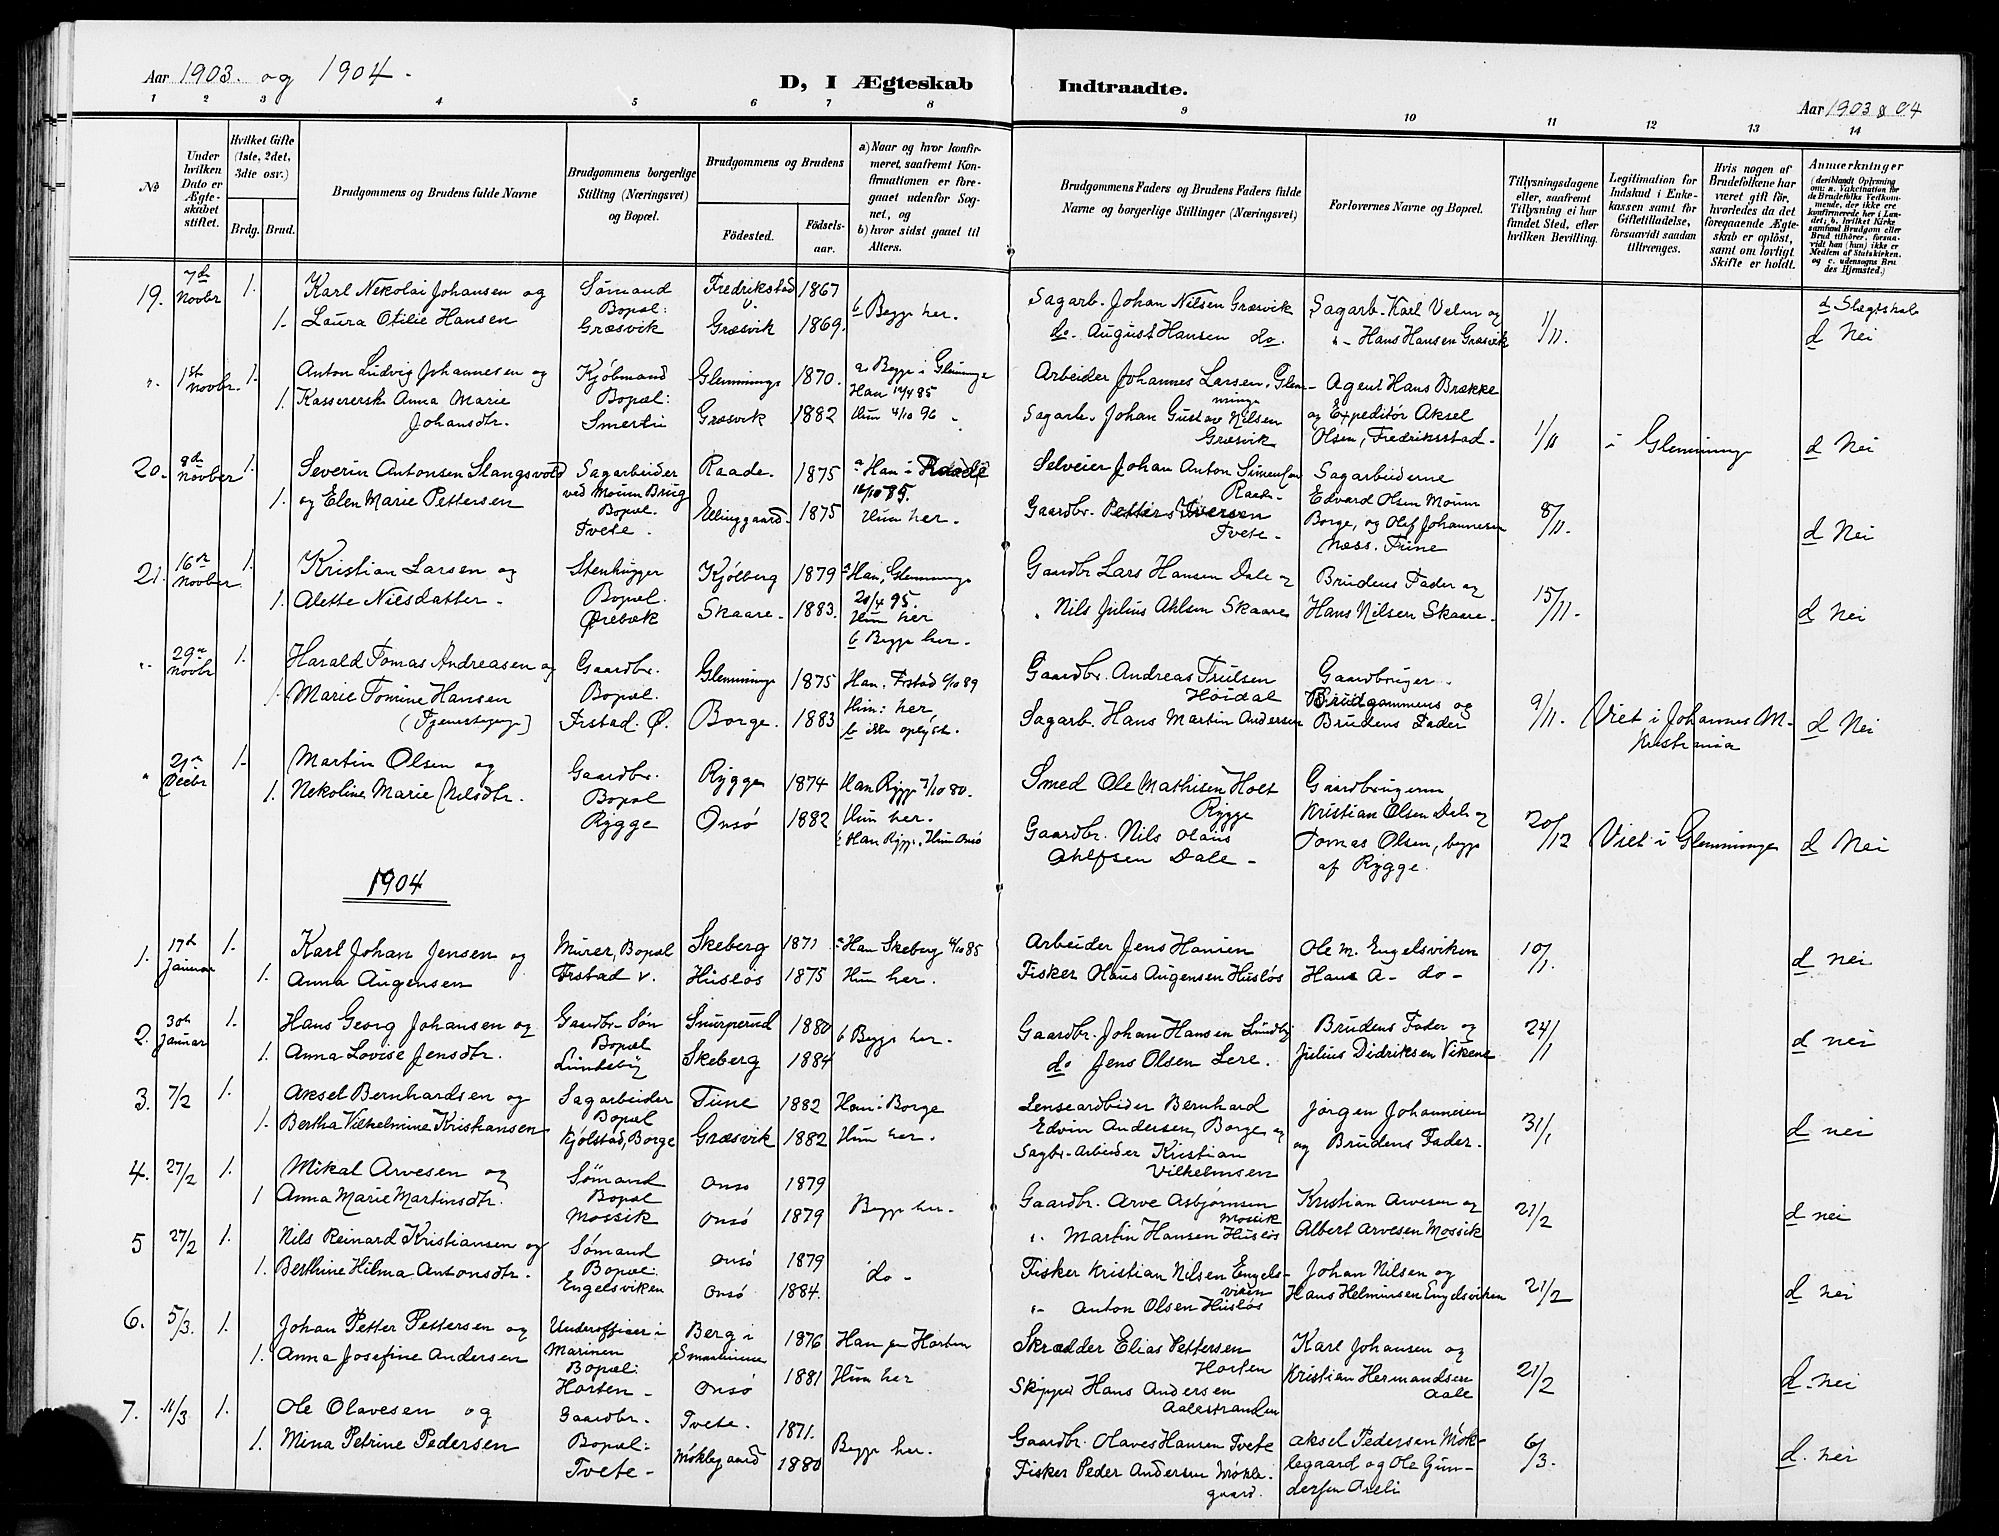 Aar 1903. og 1904.
D, I Ægteskab Indtraadte.
Aar 1903 & 04
1 2 3 4 5 6 7 8 9 10 11 12 13 14
No
Under hvilken Dato er Ægteskabet stiftet.
Hvilket Gifte (1ste, 2det, 3die osv.)
Brdg. Brud.
Brudgommens og Brudens fulde Navne
Brudgommens borgerlige Stilling (Næringsvei) og Bopæl.
Brudgommens og Brudens
Fødested. Fødselsaar.
a) Naar og hvor konfirmeret, saafremt Konfirmationen er foregaaet udenfor Sognet, og
b) hvor sidst gaaet til Alters.
Brudgommens Faders og Brudens Faders fulde Navne og borgerlige Stillinger (Næringsvei)
Forlovernes Navne og Bopæl.
Tillysningsdagene eller, saafremt Tillysning ei har fundet Sted, efter hvilken Bevilling.
Legitimation for Indskud i Enkekassen samt for Giftetilladelse, forsaavidt saadan tiltrænges.
Hvis nogen af Brudefolkene har været gift før, hvorledes da det foregaaende Ægteskab er opløst, samt om lovligt Skifte er holdt.
Anmerkninger
(deriblandt Oplysning om: a. Vakcination for de Brudefolks Vedkommende, der ikke ere konfirmerede her i Landet, b. hvilket Kirkesamfund Brudgom eller Brud tilhører, forsaavidt han (hun) ikke er Medlem af Statskirken, og c. udensogns Brudes Hjemsted.)
19. 7de Novbr 1. Karl Nekolai Johansen og Sømand Fredrikstad v. 1867 b Begge her. Sagarb. Johan Nilsen Græsvik Sagarb. Karl Velm og 1/11 d Slegtskab
1. Laura Otilie Hansen Bopæl: Græsvik Græsvik 1869. do. August Hansen do. " Hans Hansen Græsvik d Nei
" 1ste Novbr. 1. Anton Ludvig Johannesen og Kjøbmand Glemminge 1870. a Begge i Glemminge Han 12/4 85 Arbeider Johannes Larsen, Glemminge Agent Hans Brække
1. Kasserersk. Anna Marie Johansdtr. Bopæl: Smertu Græsvik 1882 Hun 4/10 96 Sagarb. Johan Gustav Nilsen Græsvik og Expeditør Aksel Olsen, Fredriksstad 1/11 i Glemminge d Nei
20. 8de Novber 1. Severin Antonsen Slangsvold Sagarbeider Raade. 1875 a Han i Raade 16/10 85. Selveier Johan Anton Simensen Raade Sagarbeiderne
1. og Elen Marie Pettersen ved Moum Brug Bopæl. Tvete. Ellinggaard. 1875 Hun her. Gaardbr. Petter Iversen Tvete Edvard Olsen Moum Borge, og Olef Johannesen Næss. Tune 8/11. d Nei
21. 16de Novber 1. Kristian Larsen og Stenhugger Kjølberg 1879 a Han, Glemminge 20/4 95. Gaardbr Lars Hansen Dale og Brudens Fader og 15/11.
1. Alette Nilsdatter. Bopæl. Ørebæk Skaare. 1883. Hun her b Begge her. " Nils Julius Ahlsen Skaare Hans Nilsen Skaare. d Nei
" 29de Novbr 1. Harald Tomas Andreasen og Gaardbr. Glemminge 1875 Han. Frstad 6/10 89 Gaardbr. Andreas Trulsen Høidal Gaardbruger.
1. Marie Tomine Hansen (Tjenestepige) Bopæl. Frstad. Ø. Borge. 1883 Hun: her b ikke oplyst. Sagarb. Hans Martin Andersen Brudgommens og Brudens Fader 9/11. Viet i Johannes M. Kristiania d Nei
" 21de Decbr 1. Martin Olsen og Gaardbr. Rygge 1874 Han Rygge 3/10 80. Smed Ole Mathisen Holt Rygge Gaardbrugerne
1. Nekoline Marie Nilsdtr. Bopæl Rygge Onsø 1882 Hun her. b Han Rygge, Hun Onsø Gaardbr. Nils Olaus Ahlfsen Dale Kristian Olsen Dale og Tomas Olsen, begge af Rygge. 20/12 Viet i Glemminge d Nei
1904
1. 17de Januar 1. Karl Johan Jensen og Murer, Bopæl Skeberg 1871 a Han Skeberg 4/10 85 Arbeider Jens Hansen Ole M. Engelsviken 10/1.
1. Anna Augensen Frstad v. Husløs 1875 Hun her. Fisker Hans Augensen Husløs Hans A- do- d nei
2. 30te Januar 1. Hans Georg Johansen og Gaardbr. Søn Snurperud 1880 b Begge her. Gaardbr. Johan Hansen Lundby Brudens Fader og 24/1
1. Anna Lovise Jensdtr. Bopæl Lundeby Skeberg 1884 do Jens Olsen Lere. Julius Didriksen Vikene d nei
3. 7/2 1. Aksel Bernhardsen og Sagarbeider Tune 1882 Han i Borge Lensearbeider Bernhard Edvin Andersen, Borge og Jørgen Johannesen 31/1
1. Bertha Vilhelmine Kristiansen Bopæl Kjølstad, Borge Græsvik 1882 Hun her. Sagbr. Arbeider Kristian Vilhelmsen og Brudens Fader. d nei
4. 27/2 1. Mikal Arvesen og Sømand Onsø 1879 Begge her. Gaardbr. Arve Asbjørnsen Mossik Kristian Arvesen og 21/2
1 Anna Marie Martinsdtr. Bopæl Mossik Onsø 1879 " Martin Hansen Husløs Albert Arvesen Mossik d nei
5 27/2 1. Nils Reinard Kristiansen og Sømand Onsø 1879 do - Fisker Kristian Nilsen Engelsviken Johan Nilsen og 21/2
1. Berthine Hilma Antonsdtr. Bopæl: Engelsviken Onsø 1884. " Anton Olsen Husløs Hans Helmersen Engelsviken d nei
6. 5/3. 1. Johan Petter Pettersen og Underofficer i Marinen Berg i Smaalenene 1876 Han fra Horten Skrædder Elias Pettersen Horten Karl Johansen og 21/2
1. Anna Josefine Andersen Bopæl: Horten Onsø 1881 Hun her Skipper Hans Andersen Aalestranden Kristian Hermandsen Aale d. nei
7. 11/3 1. Ole Olavesen og Gaardbr. Tvete. 1871. Begge her. Gaardbr. Olaves Hansen Tvete Aksel Pedersen Møklegaard og Ole Gundersen Areli 6/3.
1. Mina Petrine Pedersen Bopæl: Tvete Møklegaard 1880 Fisker Peder Andersen Møklegaard. d. nei